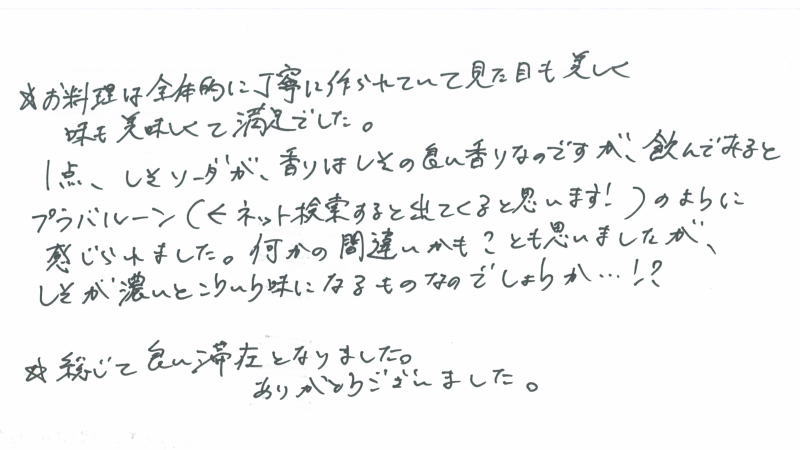 ☆お料理は全体的に丁寧に作られていて見た目も美しく
味も美味しくて満足でした。
1点、しそソーダが、香りはしその良い香りなのですが、飲んでみると
プラバルーン(←ネット検索すると出てくると思います!)のように
感じられました。何かの間違いかも?とも思いましたが、
しそが濃いとこういう味になるものなのでしょうか…!?
☆総じて良い滞在となりました。
ありがとうございました。